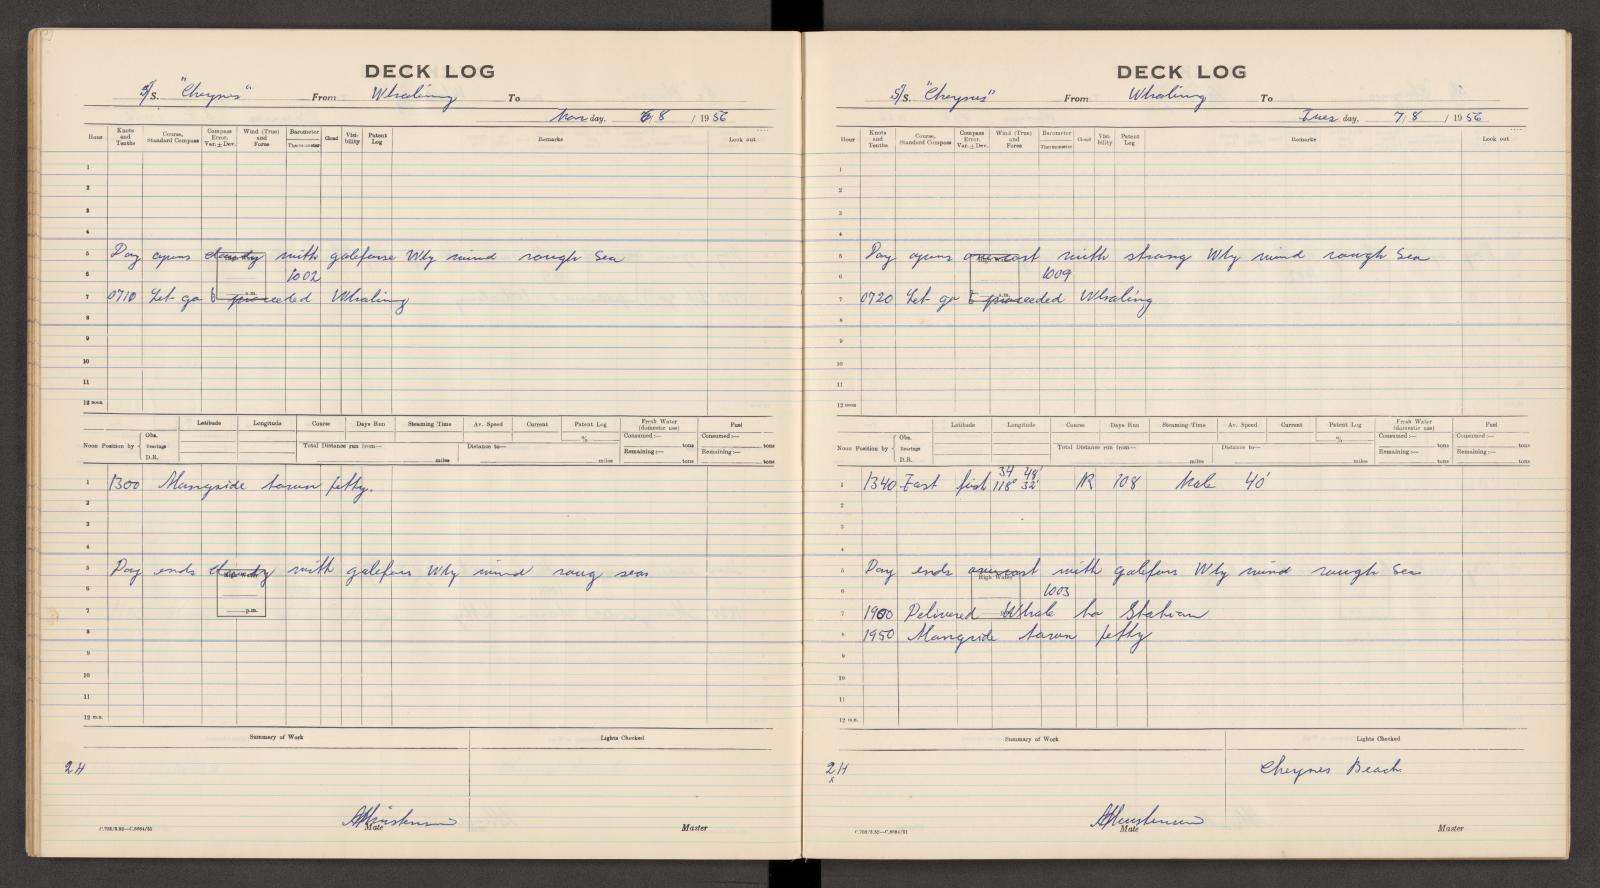 DECK LOG
S/S. "Cheynes" From Whaling To
Mon day, 6/8 / 1956
Hour Knots and Tenths Course, Standard Compass Compass Error. Var. ± Dev. Wind (True) and Force Barometer Thermometer Cloud Visi-bility Patent Log Remarks Look out
1
2
3
4
5 Day opens cloudy with galeforse Wly wind rough Sea
6 1002
7 0710 Let go & proceeded Whaling
a.m.
8
9
10
11
12 noon
Latitude Longitude Course Days Run Steaming Time Av. Speed Current Patent Log Fresh Water (domestic use) Fuel
Noon Position by Obs. Bearings D.R. Total Distance run from— miles Distance to— miles % Consumed :— tons Remaining :— tons Consumed :— tons Remaining :— tons
1 1300 Alongside town jetty.
2
3
4
5 Day ends cloudy with galefors Wly wind roug seas
High Water
6
7 p.m.
8
9
10
11
12 m.n.
Summary of Work Lights Checked
2 H
Mate Master
C.723/3.52—C.8664/51
DECK LOG
S/S. "Cheynes" From Whaling To
Tues day, 7/8 / 1956
Hour Knots and Tenths Course, Standard Compass Compass Error. Var. ± Dev. Wind (True) and Force Barometer Thermometer Cloud Visi-bility Patent Log Remarks Look out
1
2
3
4
5 Day opens overcast with strong Wly wind rough Sea
6 1009
7 0720 Let go & proceeded Whaling
a.m.
8
9
10
11
12 noon
Latitude Longitude Course Days Run Steaming Time Av. Speed Current Patent Log Fresh Water (domestic use) Fuel
Noon Position by Obs. Bearings D.R. Total Distance run from— miles Distance to— miles % Consumed :— tons Remaining :— tons Consumed :— tons Remaining :— tons
34 48'
1 1340 Fast fish 118° 32' NR 108 Male 40'
2
3
4
5 Day ends overcast with galefors Wly wind rough Sea
High Water
6 1003
7 1900 Delivered Whale to Station
8 1950 Alongside town jetty
9
10
11
12 m.n.
Summary of Work Lights Checked
2 H Cheynes Beach
Mate Master
C.723/3.52—C.8664/51